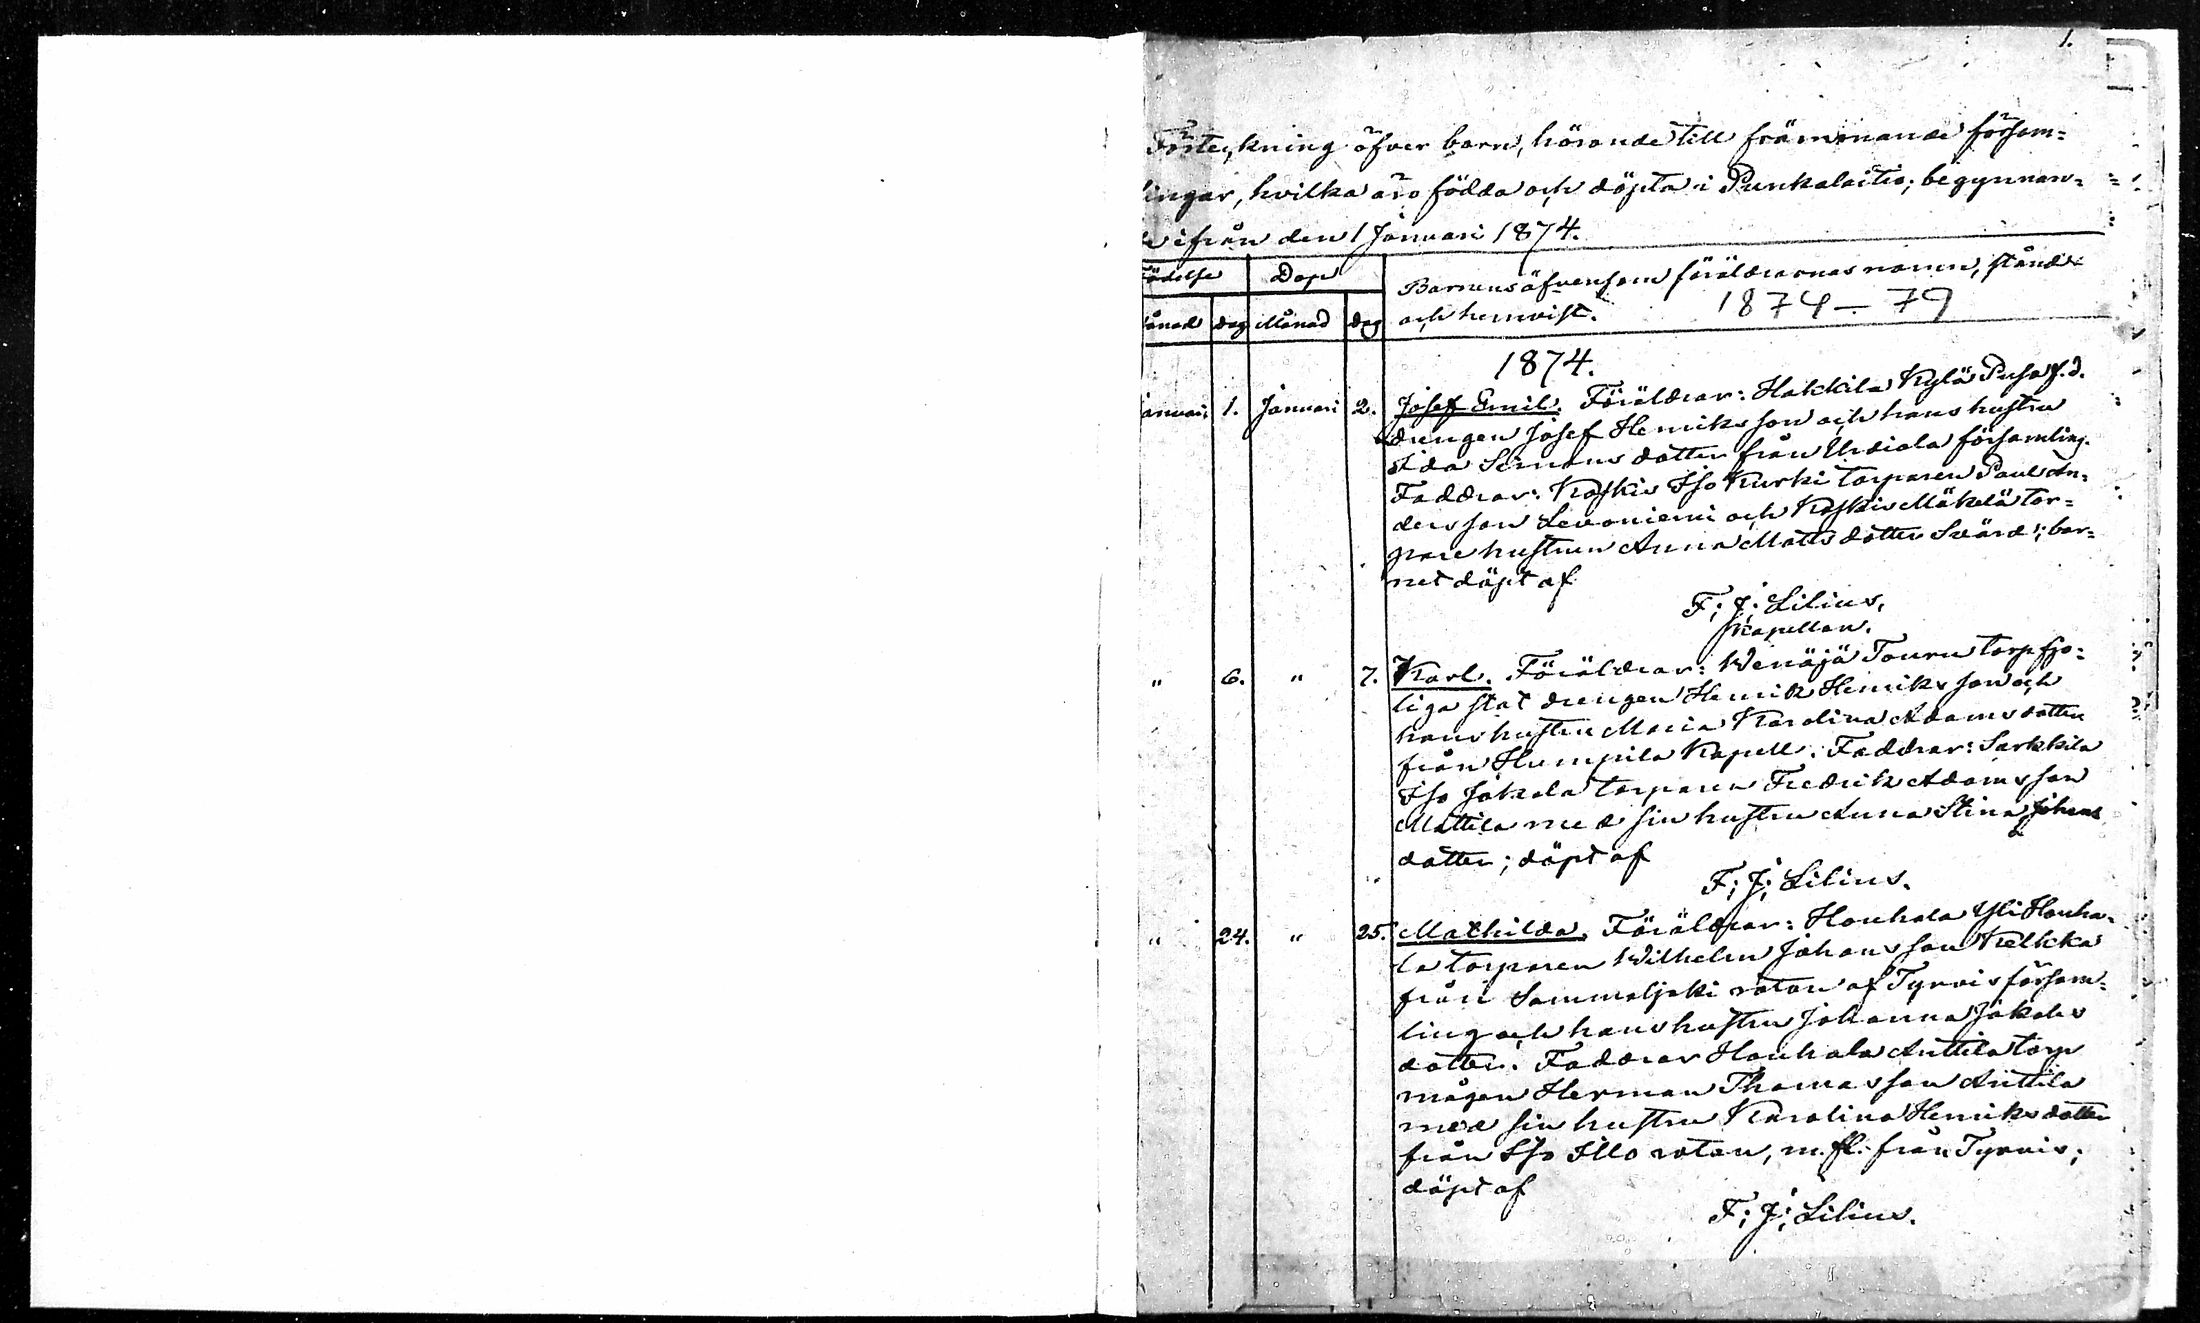 1.
Förteckning öfver barn, hörande till främmande försam-
lingar, hvilka äro födda och döpta i Punkalaitio; begynnan-
de ifrån den 1 Januari 1874.
Födelse Dop Barnens äfvensom föräldrarnas namn, stånd
Månad dag Månad dag och hemvist. 1874-79
1874.
Januari 1. Januari 2. Josef Emil. Föräldrar: Hakkila Kylä Pusa f.d.
drengen Josef Henriksson och hans hustru
Ida Simonsdotter från Urdiala församling.
Faddrar: Koskis Iso Kurki torparen Paul An-
dersson Levoniemi och Koskis Mäkelä tor-
parehustrun Anna Mattsdotter Svärd; bar-
net döpt af
F; J; Lilius,
Kapellan.
" 6. " 7. Karl. Föräldrar: Wenäjä Touru torpfjo-
liga statdrengen Henrik Henriksson och
hans hustru Maria Karolina Adamsdotter
från Humpila Kapell. Faddrar: Sarkkila
Iso Jakala torparen Fredrik Adamsson
Mattila med sin hustru Anna Stina Johans
dotter; döpt af
F; J; Lilius.
" 24. " 25. Mathilda. Föräldrar: Houhala Yli Houha-
la torparen Wilhelm Johansson Kelkka
från Sammaljoki rotan af Tyrvis försam-
ling och hans hustru Johanna Jakobs
dotter. Faddrar Houhala Anttila torp
mågen Herman Thomasson Anttila
med sin hustru Karolina Henriksdotter
från Iso Illo rotan, m. fl. från Tyrvis;
döpt af
F; J; Lilius.